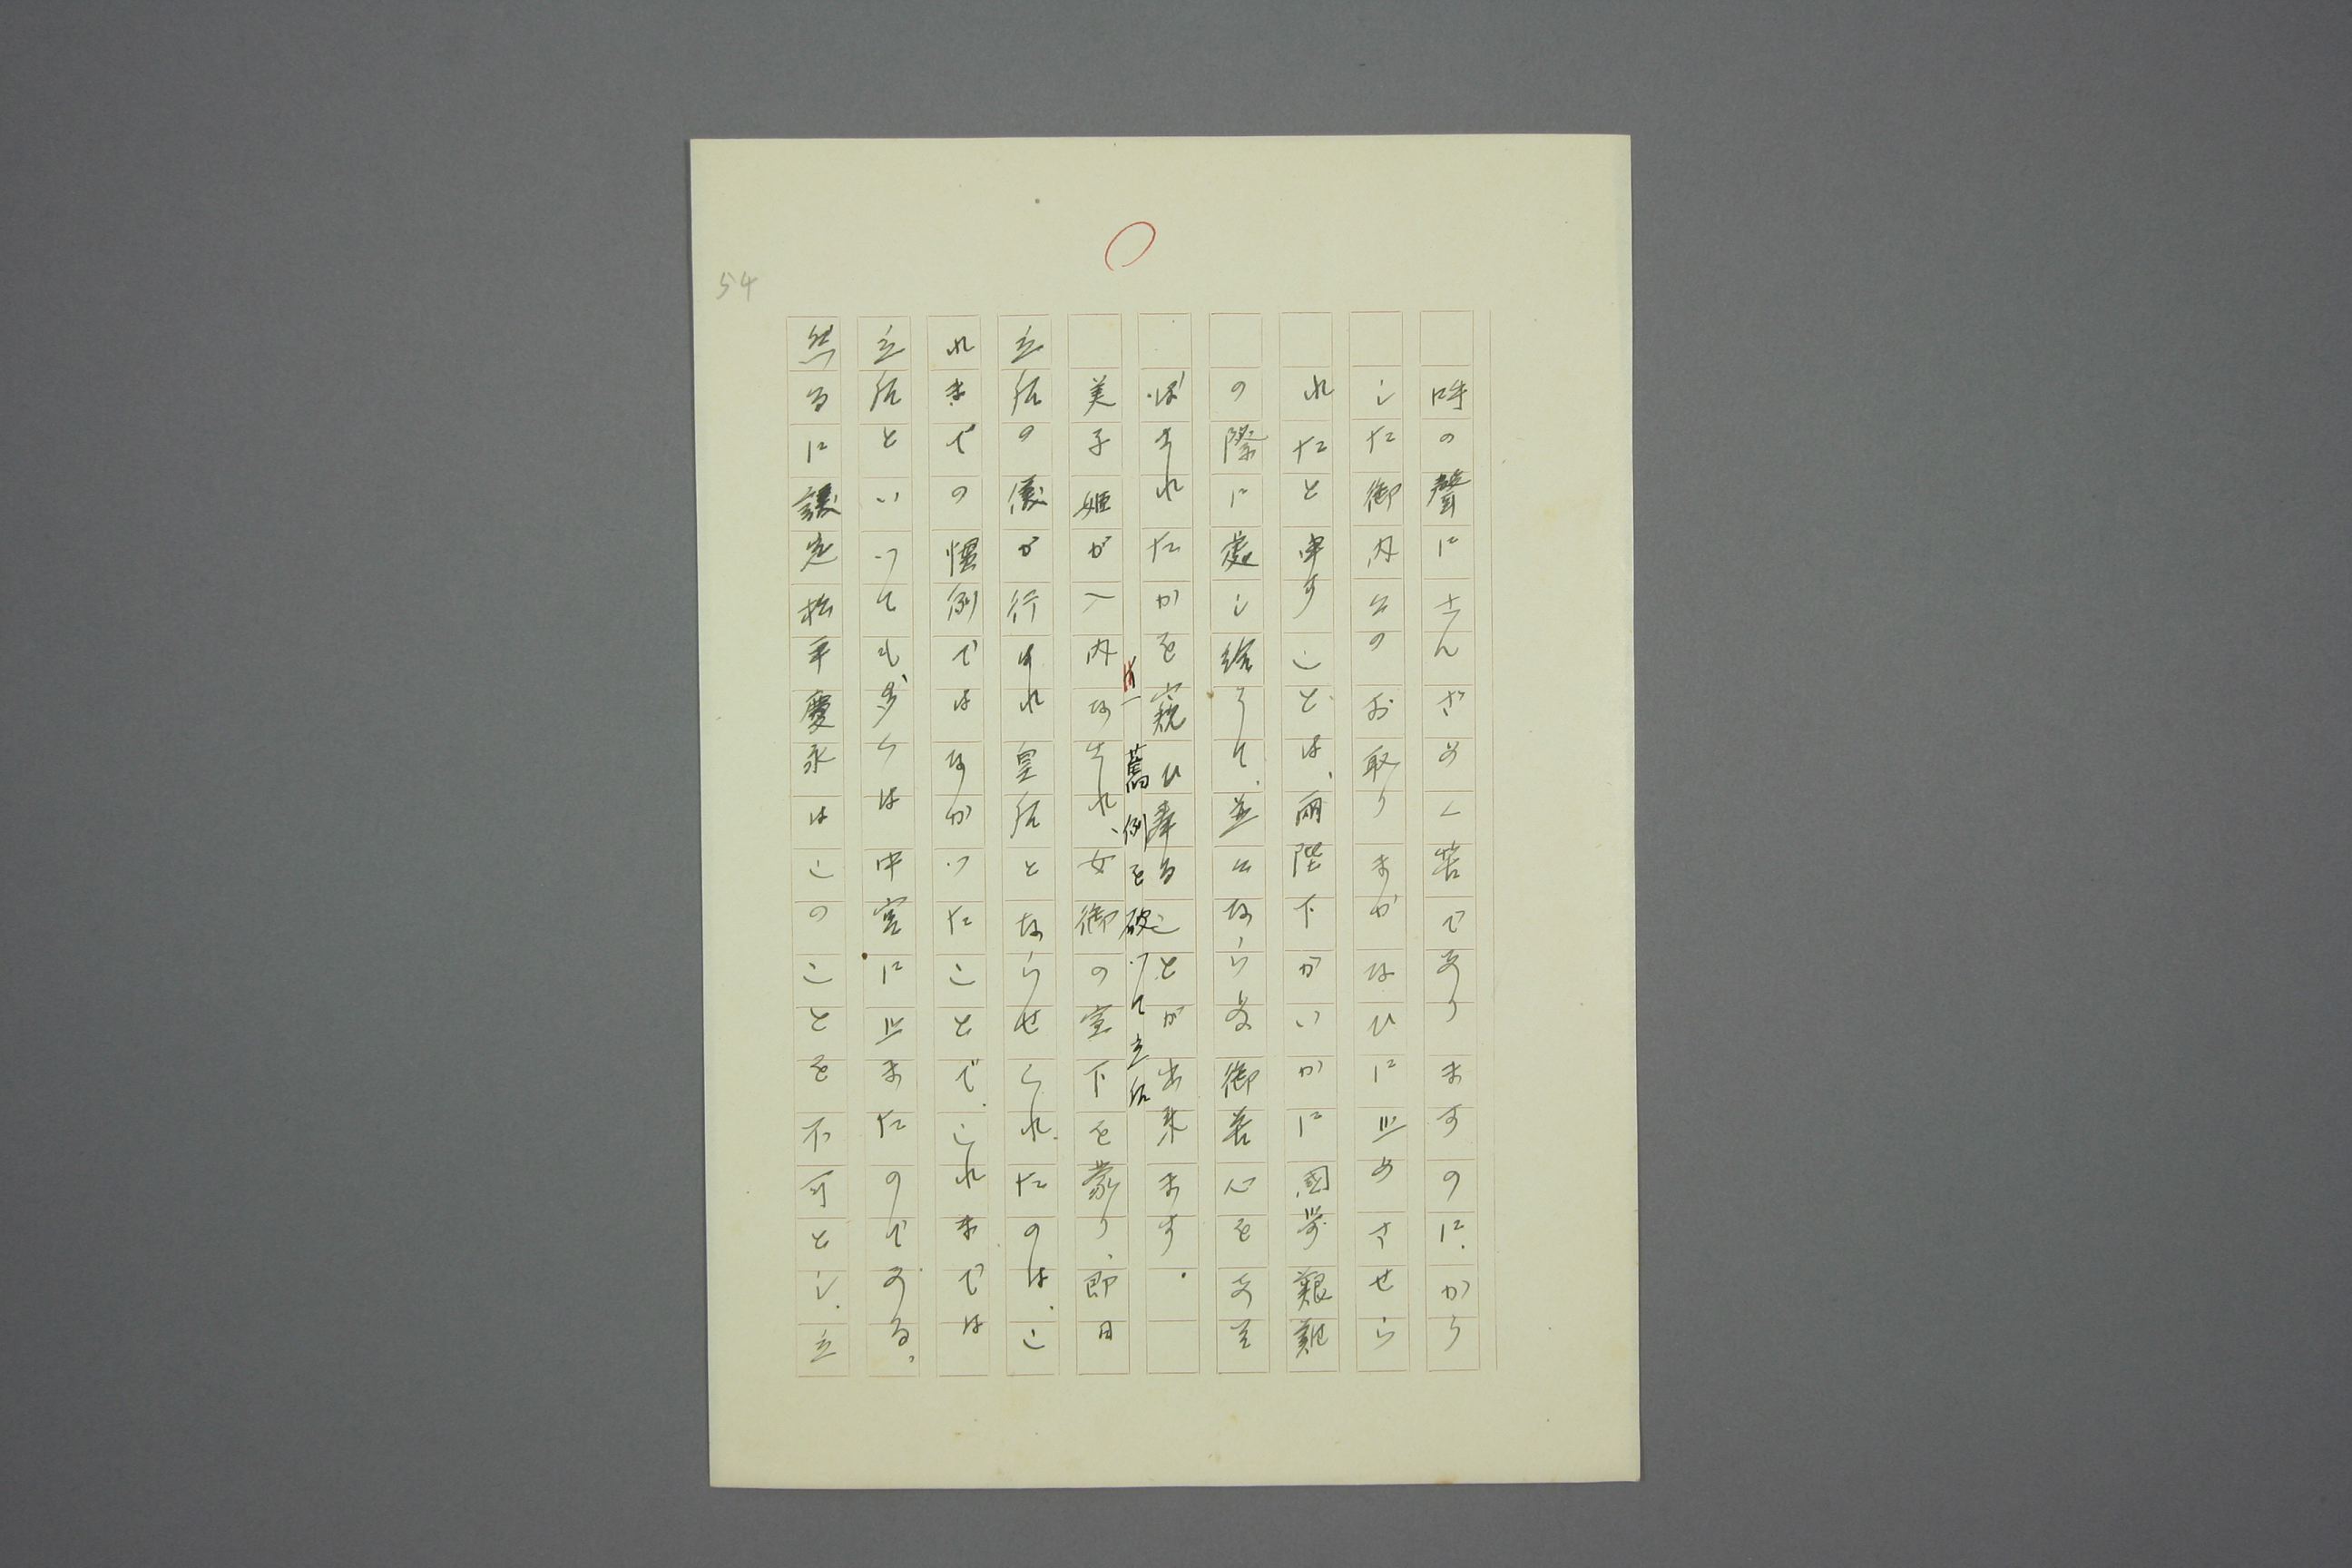 54
呼の聲にさんざめく筈でありますのに、から
した御内宮のお取りまかなひに止めさせら
れたと申すことは、兩陛下がいかに國歩艱難
の際に処し給うて、並々ならぬ御苦心をあそ
ばされたかを窺ひ奉ることが出来ます。
は一舊例を破つて立后
美子姫が入内なされ、女御の宣下を蒙り、即日
立后の儀が行はれ皇后とならせられたのは、こ
れまでの慣例ではなかつたことで、これまでは
立后といつても多くは中宮に止またのである。
然るに議定松平慶永はこのことを不可とし、立